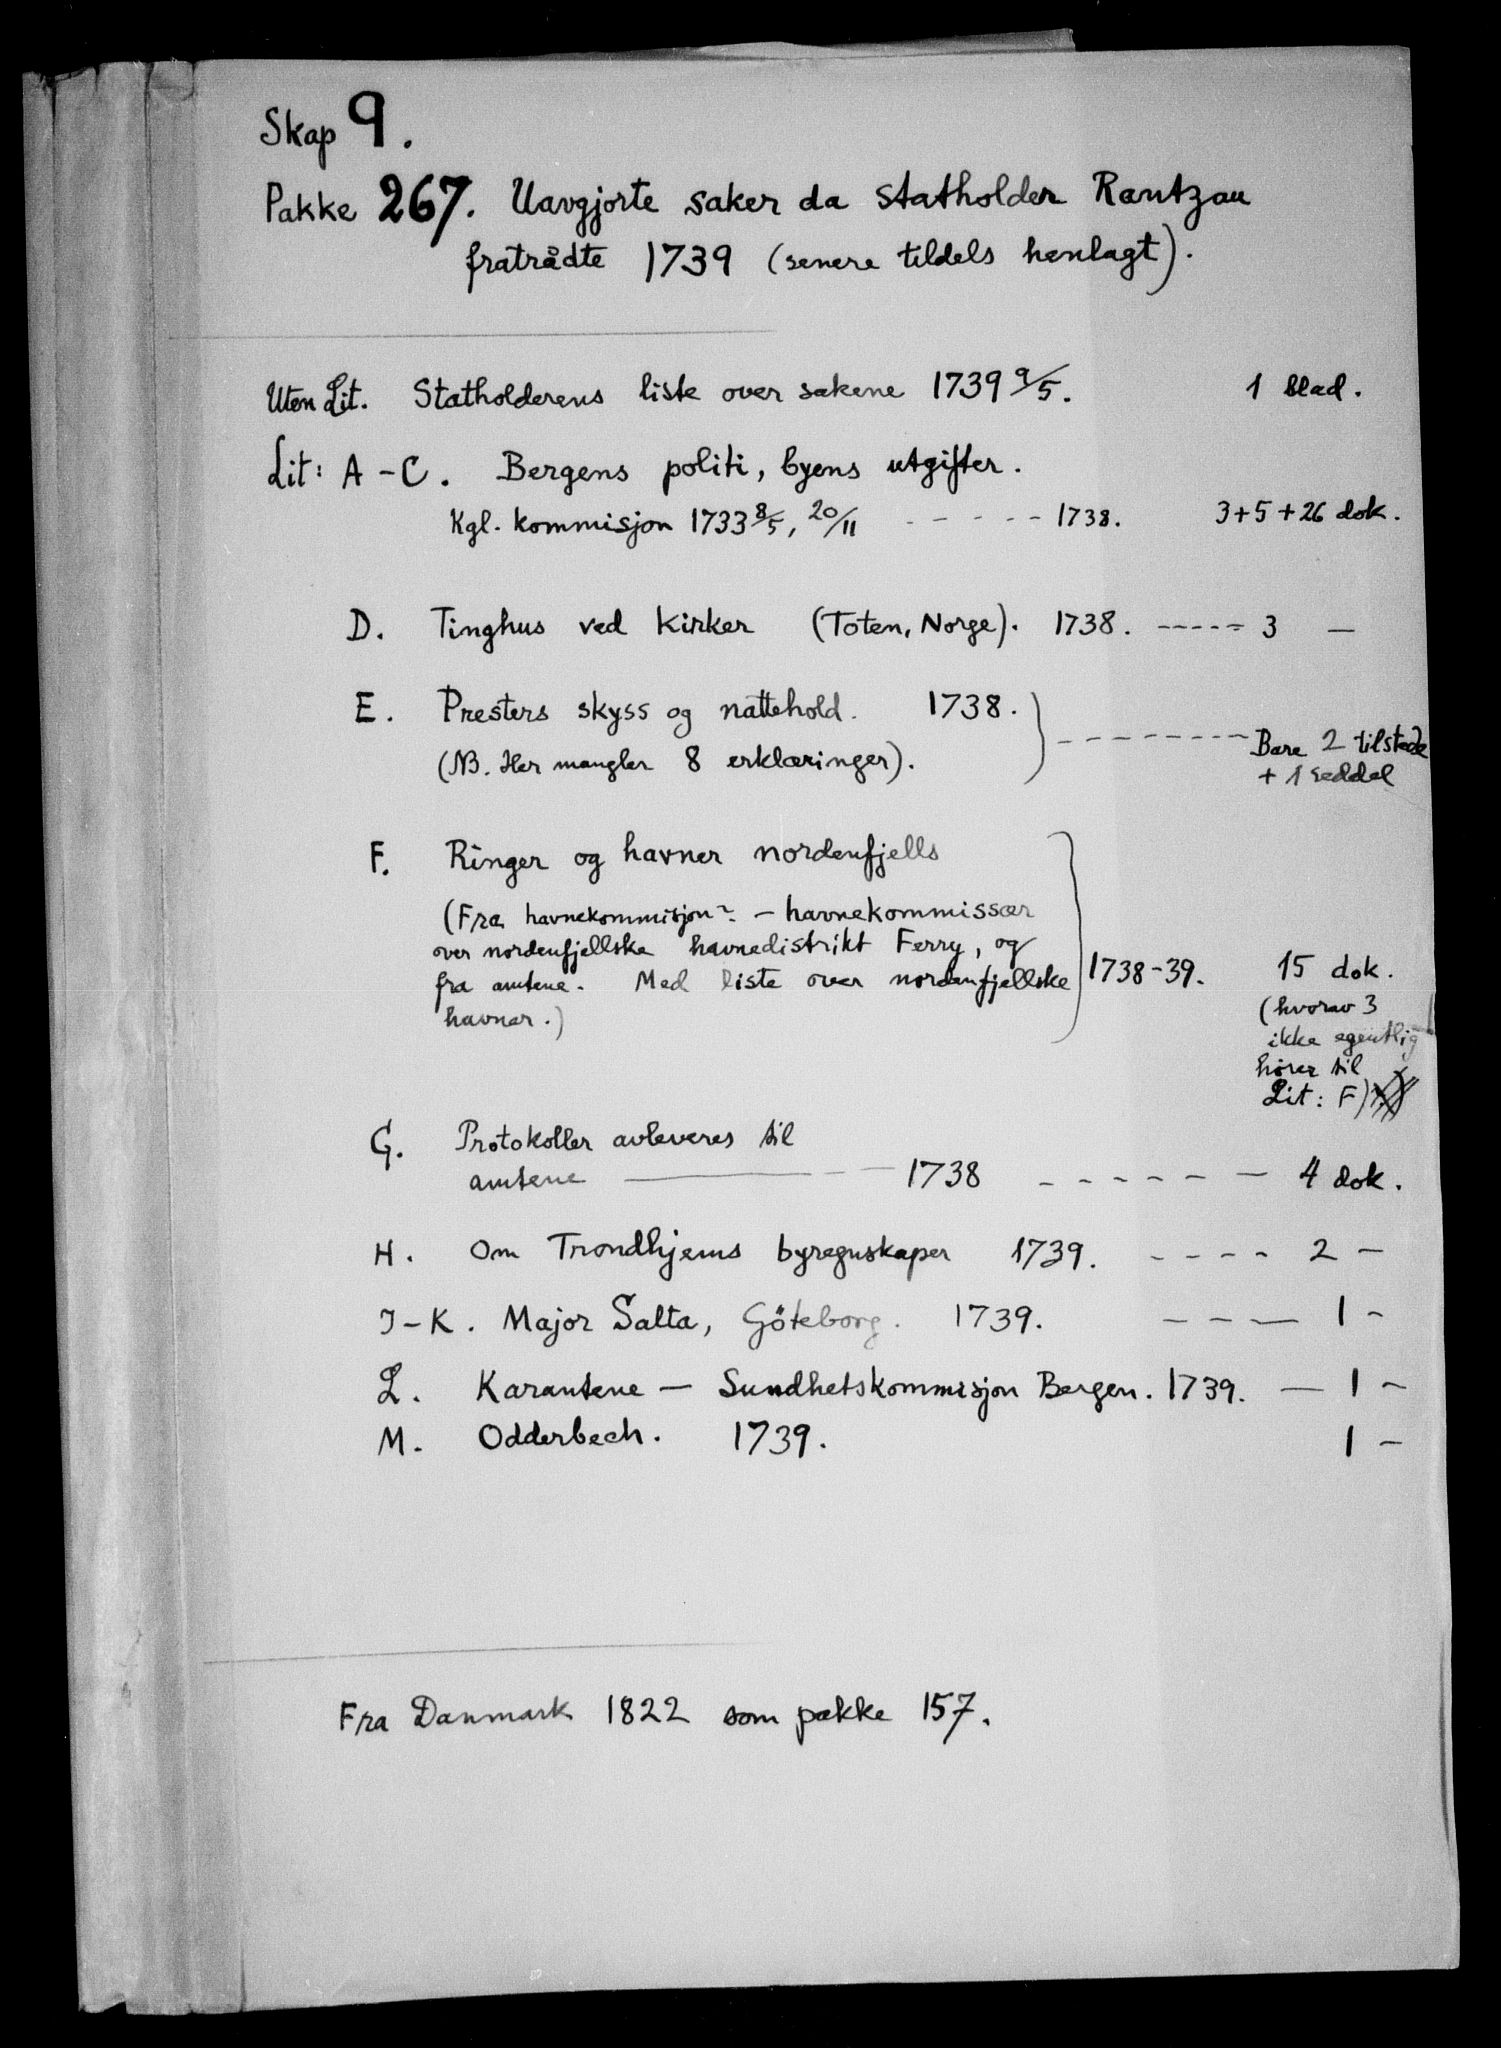 Skap 9.
Pakke 267. Uavgjorte saker da statholder Rantzau
fratrådte 1739 (senere tildels henlagt).
Uten Lit. Statholderens liste over sakene 1739 9/5. 1 blad.
Lit: A-C. Bergens politi, byens utgifter.
Kgl. kommisjon 1733 8/5, 20/11 - - - - - 1738. 3+5+26 dok.
D. Tinghus ved kirker (Toten, Norge). 1738. ----- 3 —
E. Presters skyss og nattehold. 1738.
(NB. Her mangler 8 erklæringer). -------- Bare 2 tilstede
+ 1 seddel
F. Ringer og havner nordenfjells
(Fra havnekommisjon. - havnekommissær
over nordenfjellske havnedistrikt Ferry, og
fra amtene. Med liste over nordenfjellske 1738-39. 15 dok.
havner.) (hvorav 3
ikke egentlig
hører til
Lit: F)
G. Protokoller avleveres til
amtene ——— - - 1738 - - - - - - 4 dok.
H. Om Trondhjems byregnskaper 1739. - - - - 2 -
I-K. Major Salta, Göteborg. 1739. - - — 1 -
L. Karantene - Sundhetskommisjon Bergen. 1739. — 1 -
M. Odderbech. 1739. 1 -
Fra Danmark 1822 som pakke 157.